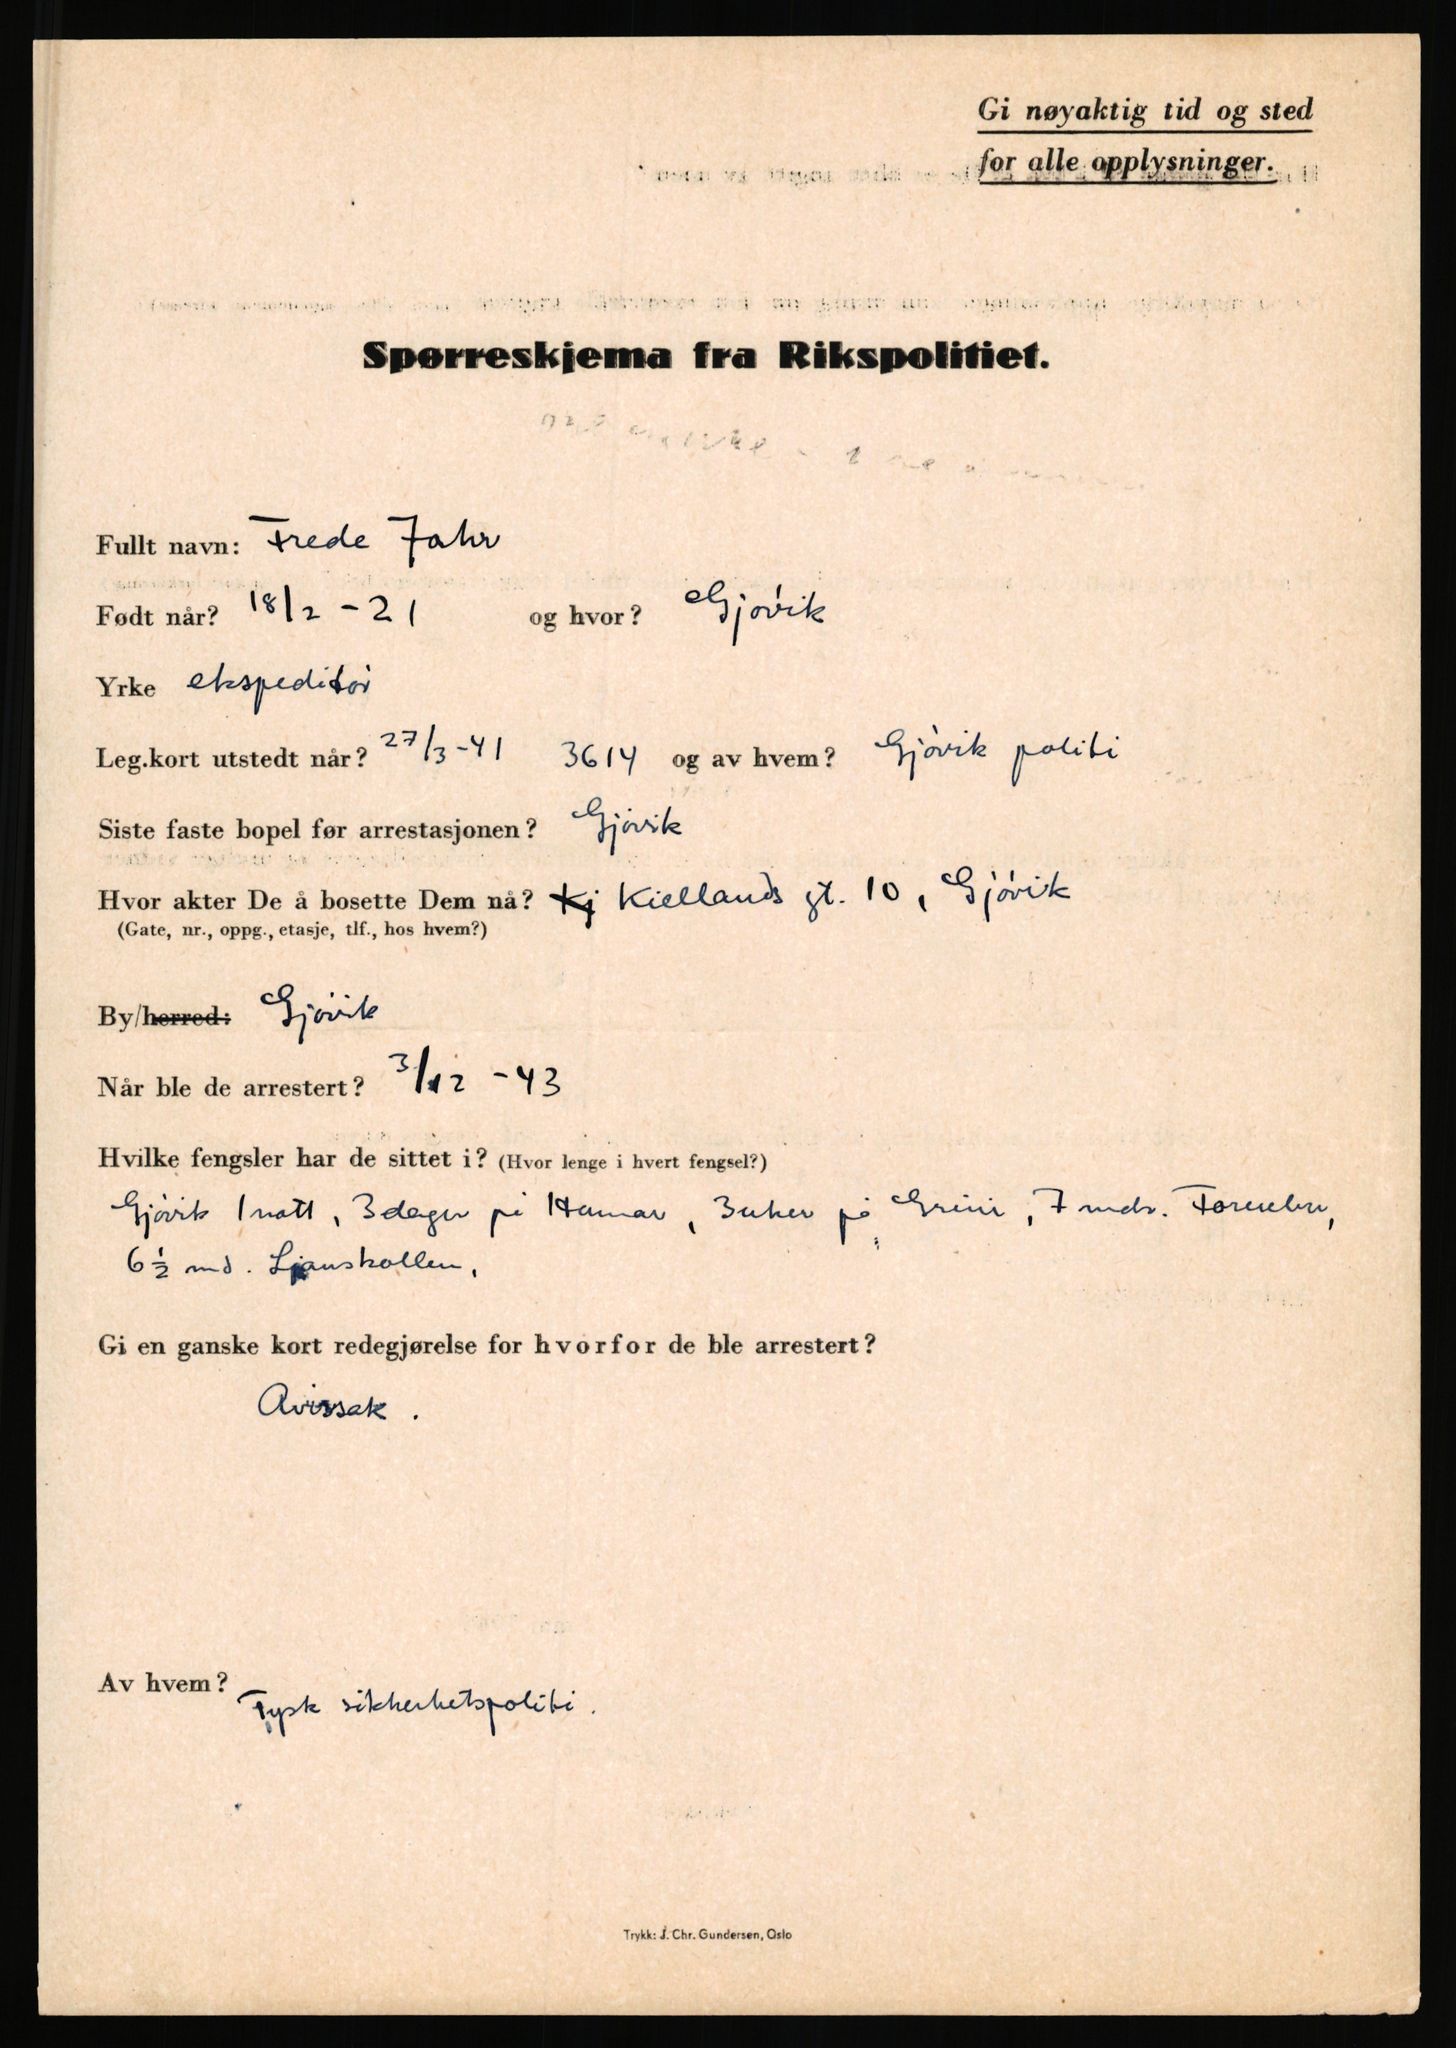 Gi nøyaktig tid og sted
for alle opplysninger.
Spørreskjema fra Rikspolitiet.
Fullt navn: Frede Jahr
Født når? 18/2 - 21 og hvor? Gjøvik
Yrke ekspeditør
Leg.kort utstedt når? 27/3-41 3614 og av hvem? Gjøvik politi
Siste faste bopel før arrestasjonen? Gjøvik
Hvor akter De å bosette Dem nå? Kj Kiellands gt. 10, Gjøvik
(Gate, nr., oppg., etasje, tlf., hos hvem?)
By/herred: Gjøvik
Når ble de arrestert? 3/12 - 43
Hvilke fengsler har de sittet i? (Hvor lenge i hvert fengsel?)
Gjøvik 1 natt, 3 dager på Hamar, 3 uker på Grini, 7 mdr. Fornebu,
6 ½ md. Ljanskollen,
Gi en ganske kort redegjørelse for hvorfor de ble arrestert?
Avissak.
Av hvem? Tysk sikkerhetspoliti.
Trykk: J. Chr. Gundersen, Oslo